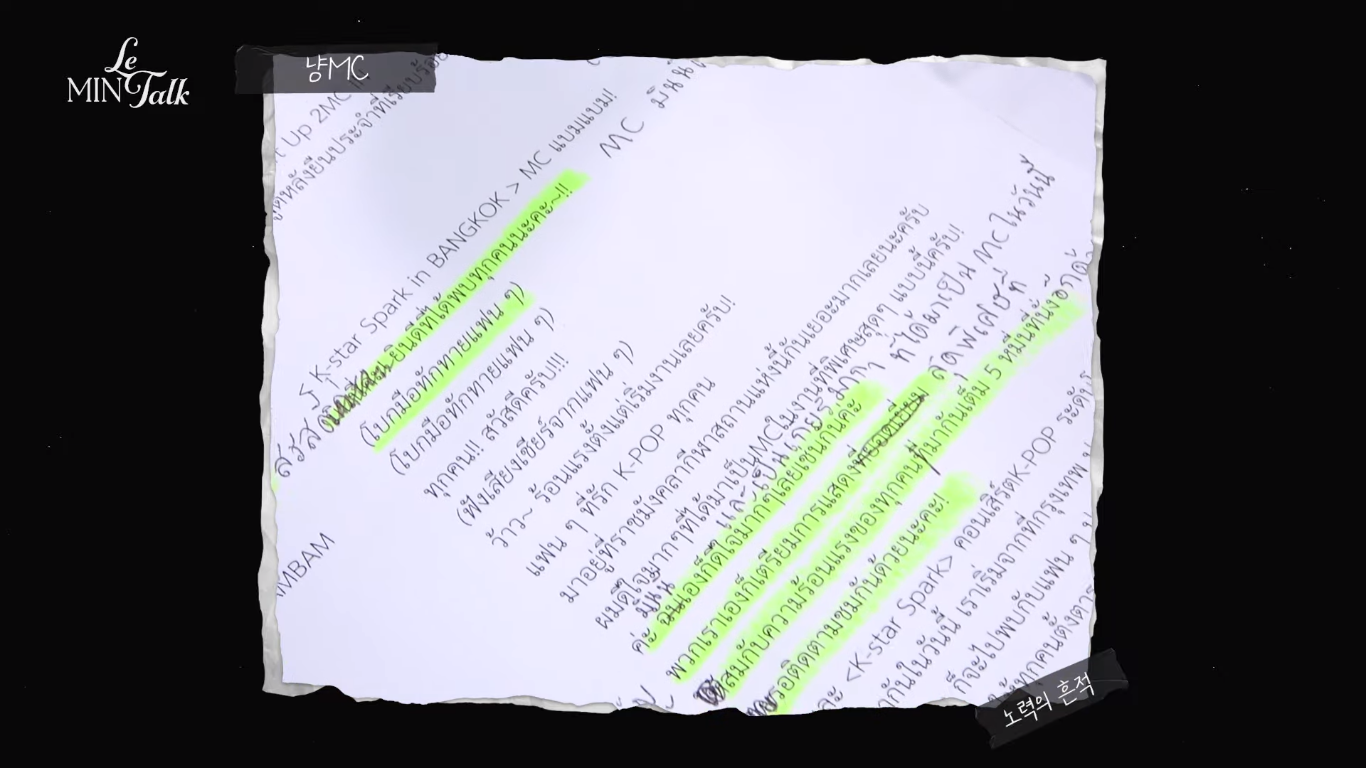 Le
MIN Talk
냥MC
t Up 2MC
ดหลังยืนประจำที่เรียบร้อ
K-star Spark in BANGKOK > MC แบมแบม!
MC มินนี่
สวัสดี ยินดีที่ได้พบทุกคนนะคะ~!!
(โบกมือทักทายแฟน ๆ)
(โบกมือทักทายแฟน ๆ)
ทุกคน!! สวัสดีครับ!!!
(ฟังเสียงเชียร์จากแฟน ๆ)
ว้าว~ ร้อนแรงตั้งแต่เริ่มงานเลยครับ!
แฟน ๆ ที่รัก K-POP ทุกคน
มาอยู่ที่ราชมังคลากีฬาสถานแห่งนี้กันเยอะมากเลยนะครับ
ผมดีใจมากๆที่ได้มาเป็นMCในงานที่พิเศษสุดๆ แบบนี้ครับ!
มินนี่ และเป็นเกียรติมากๆ ที่ได้มาเป็น MC ในวันนี้
ค่ะ ฉันเองก็ดีใจมากๆเลยเช่นกันค่ะ
พวกเราเองก็เตรียมการแสดงที่ยอดเยี่ยม สุดพิเศษที่
สมกับความร้อนแรงของทุกคนที่มากันเต็ม 5 หมื่นที่นั่ง
รอติดตามชมกันด้วยนะคะ!
MBAM
ละ <K-star Spark> คอนเสิร์ตK-POP ระดับ
ากันในวันนี้ เราเริ่มจากที่กรุงเทพ
ก็จะไปพบกับแฟน ๆ
ทุกคนตั้งตาร
노력의 흔적